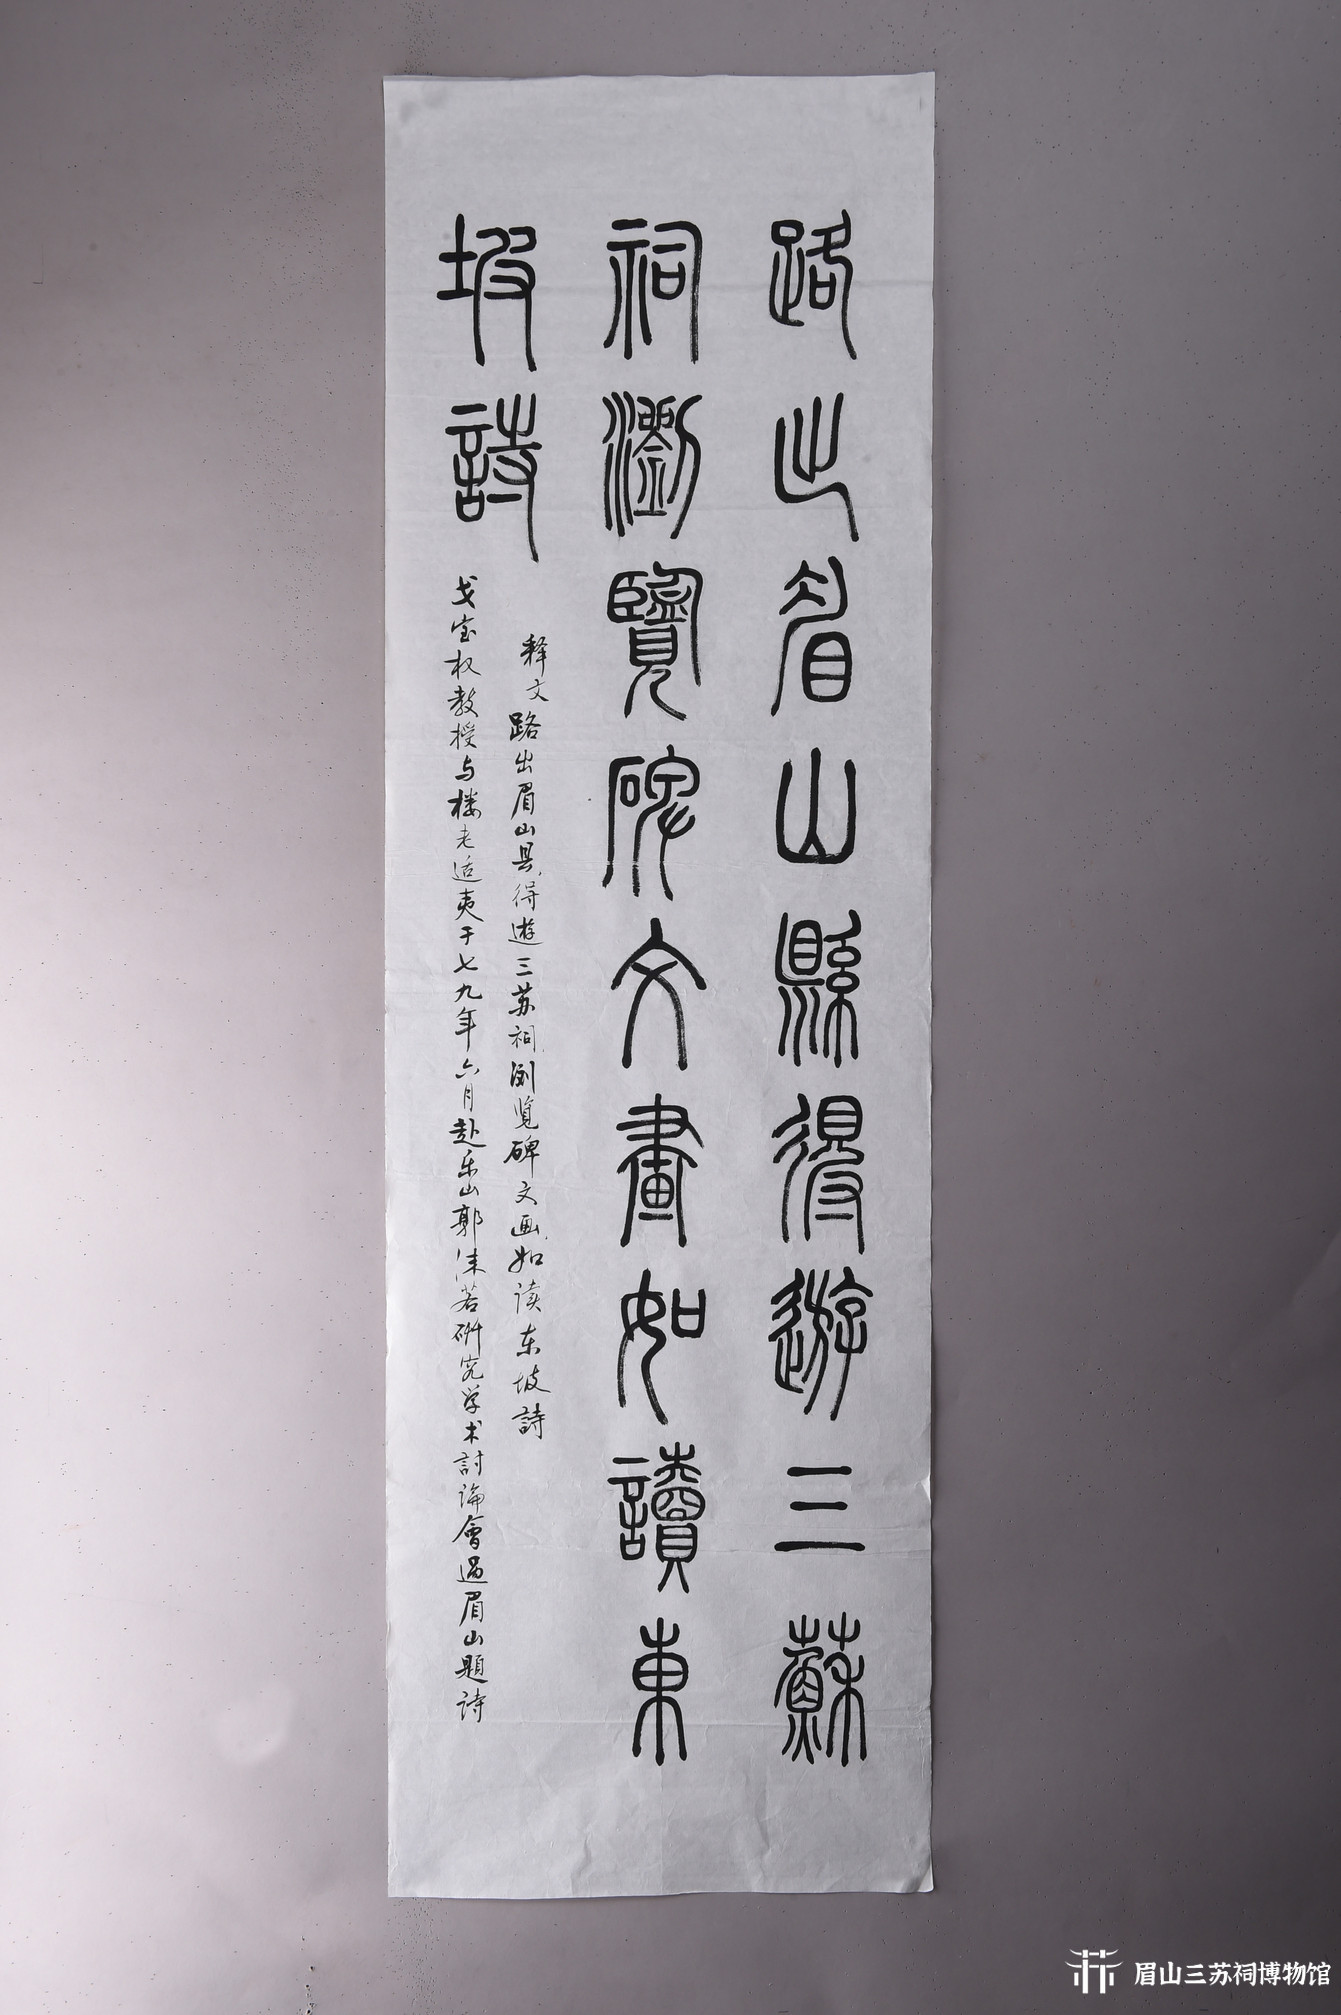 路出眉山縣得遊三蘇
祠瀏覽碑文畫如讀東
坡詩
释文路出眉山县得遊三苏祠浏览碑文画如读东坡詩
戈宝权教授与楼老适夷于七九年六月赴乐山郭沫若研究学术討論會過眉山題诗
眉山三苏祠博物馆